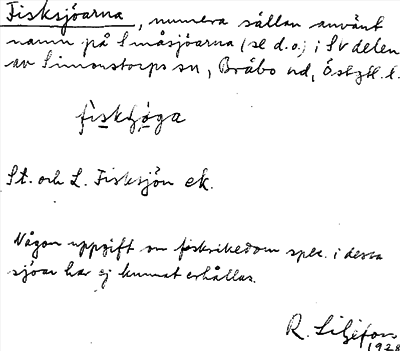 Fisksjöarna, numera sällan använt
namn på Småsjöarna (se d.o.) i SV delen
av Simonstorps sn, Bråbo hd, Östgtl. l.
St. och L. Fisksjön ek.
Någon uppgift om fiskrikedom spec. i dessa
sjöar har ej kunnat erhållas.
R. Liljefors
1928